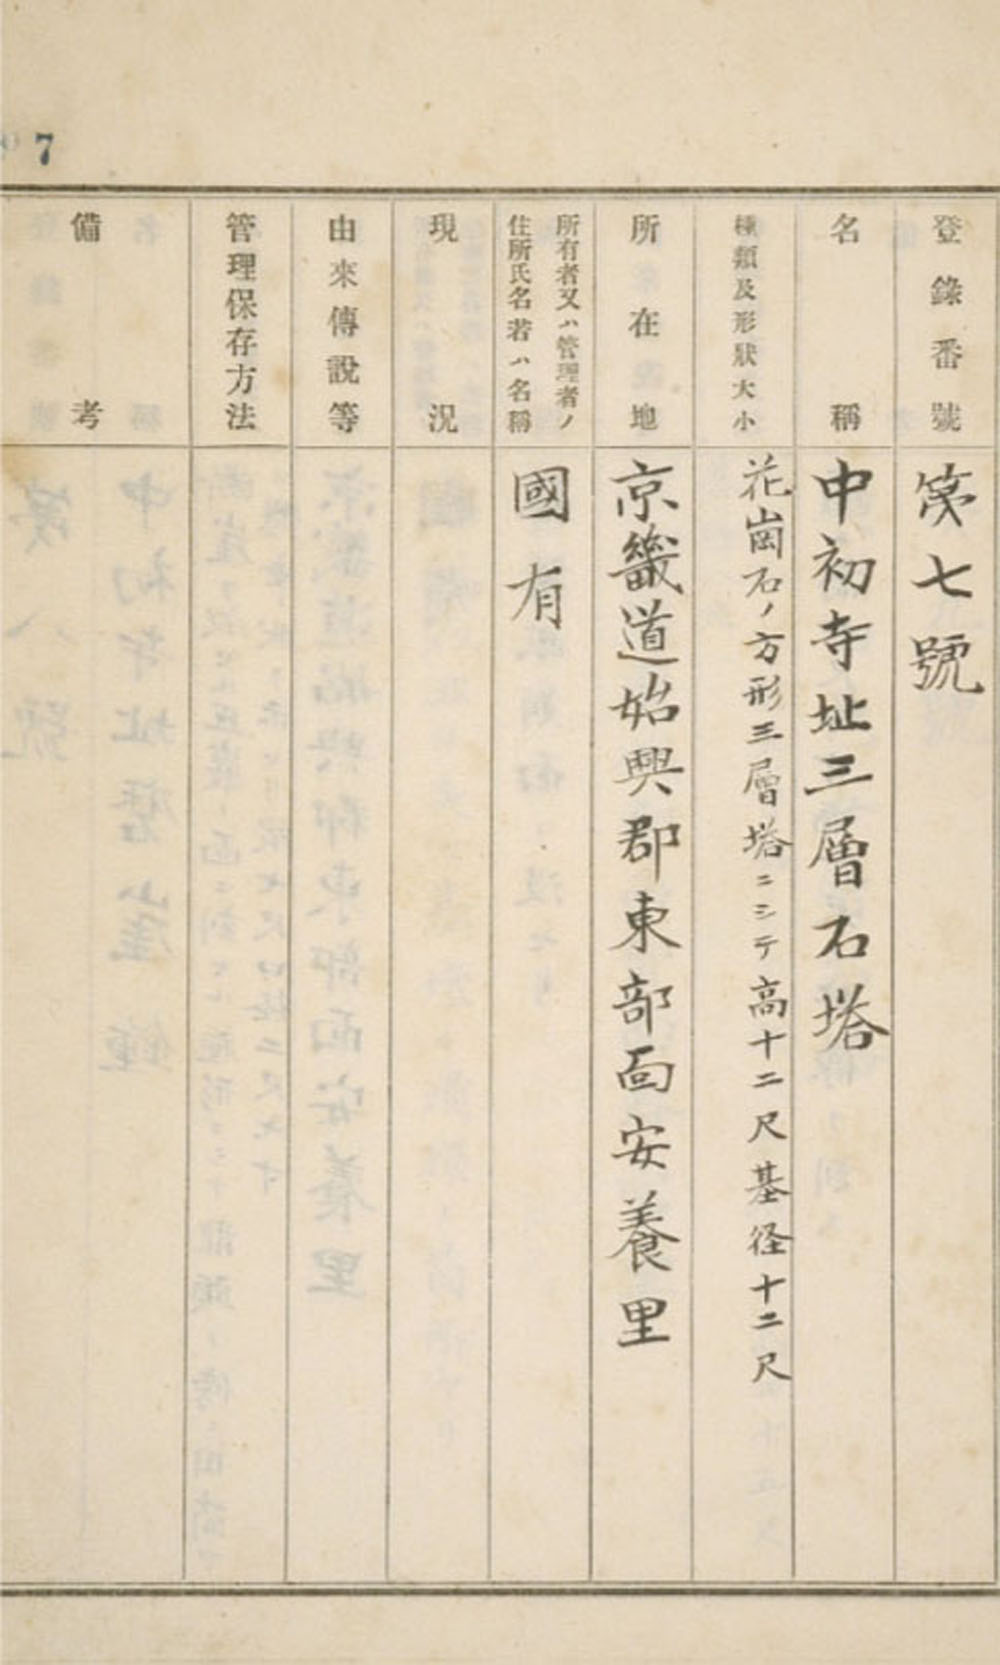 7
登錄番號
第七號
名稱
中初寺址三層石塔
種類及形狀大小
花崗石ノ方形三層塔ニシテ高十二尺基径十二尺
所在地
京畿道始興郡東部面安養里
所有者又ハ管理者ノ
住所氏名若ハ名稱
國有
現況
由來傳說等
管理保存方法
備考